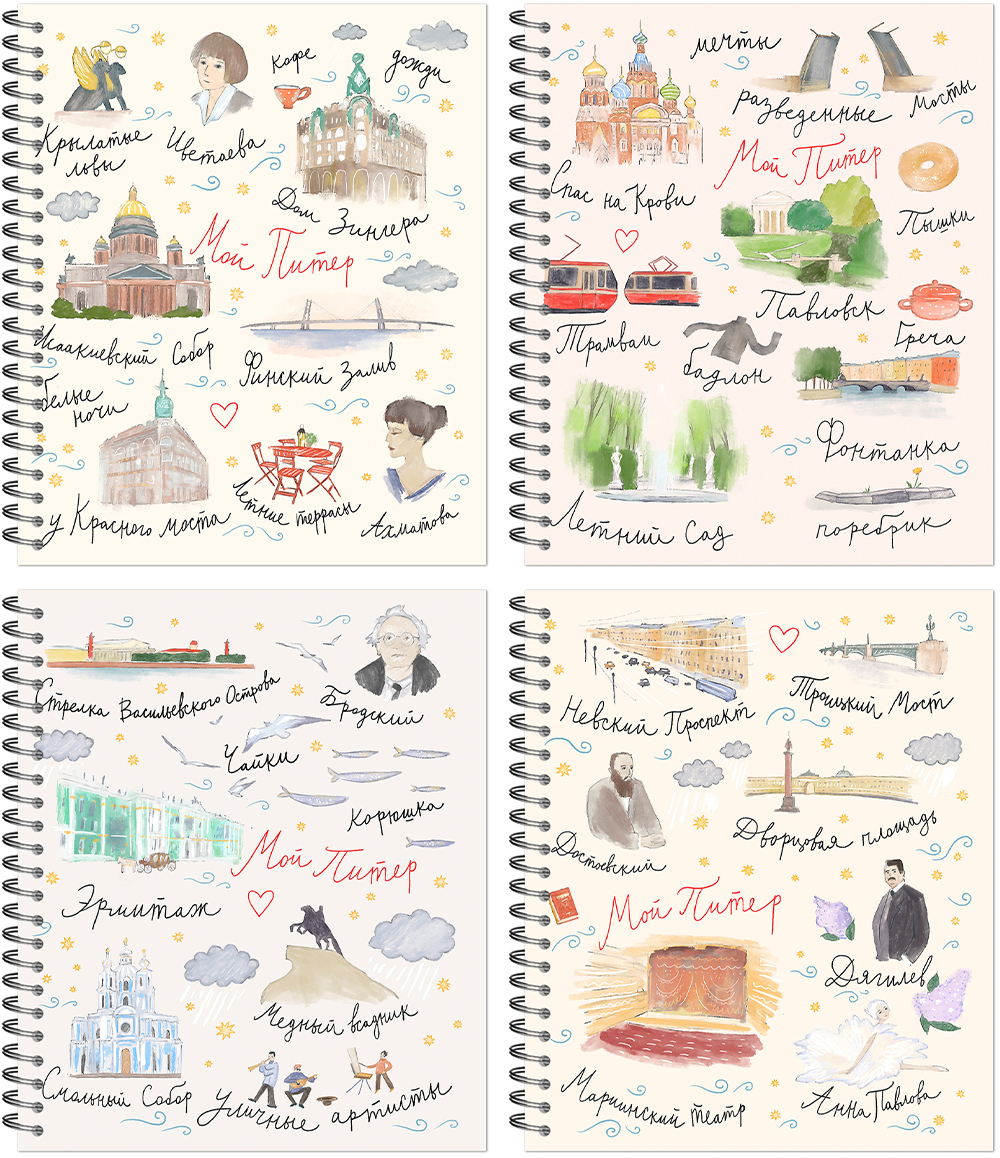 Кофе
дожди
Крылатые
львы
Цветаева
Дом Зингера
Мой Питер
Исаакиевский Собор
Финский Залив
белые
ночи
у Красного моста
Летние террасы
Ахматова
мечты
разведенные
Мосты
Спас на Крови
Мой Питер
Пышки
Павловск
Трамваи
бадлон
Греча
Фонтанка
Летний Сад
поребрик
Стрелка Васильевского Острова
Бродский
Чайки
Корюшка
Мой Питер
Эрмитаж
Медный всадник
Смольный Собор
Уличные артисты
Невский Проспект
Троицкий Мост
Достоевский
Дворцовая площадь
Мой Питер
Дягилев
Мариинский театр
Анна Павлова